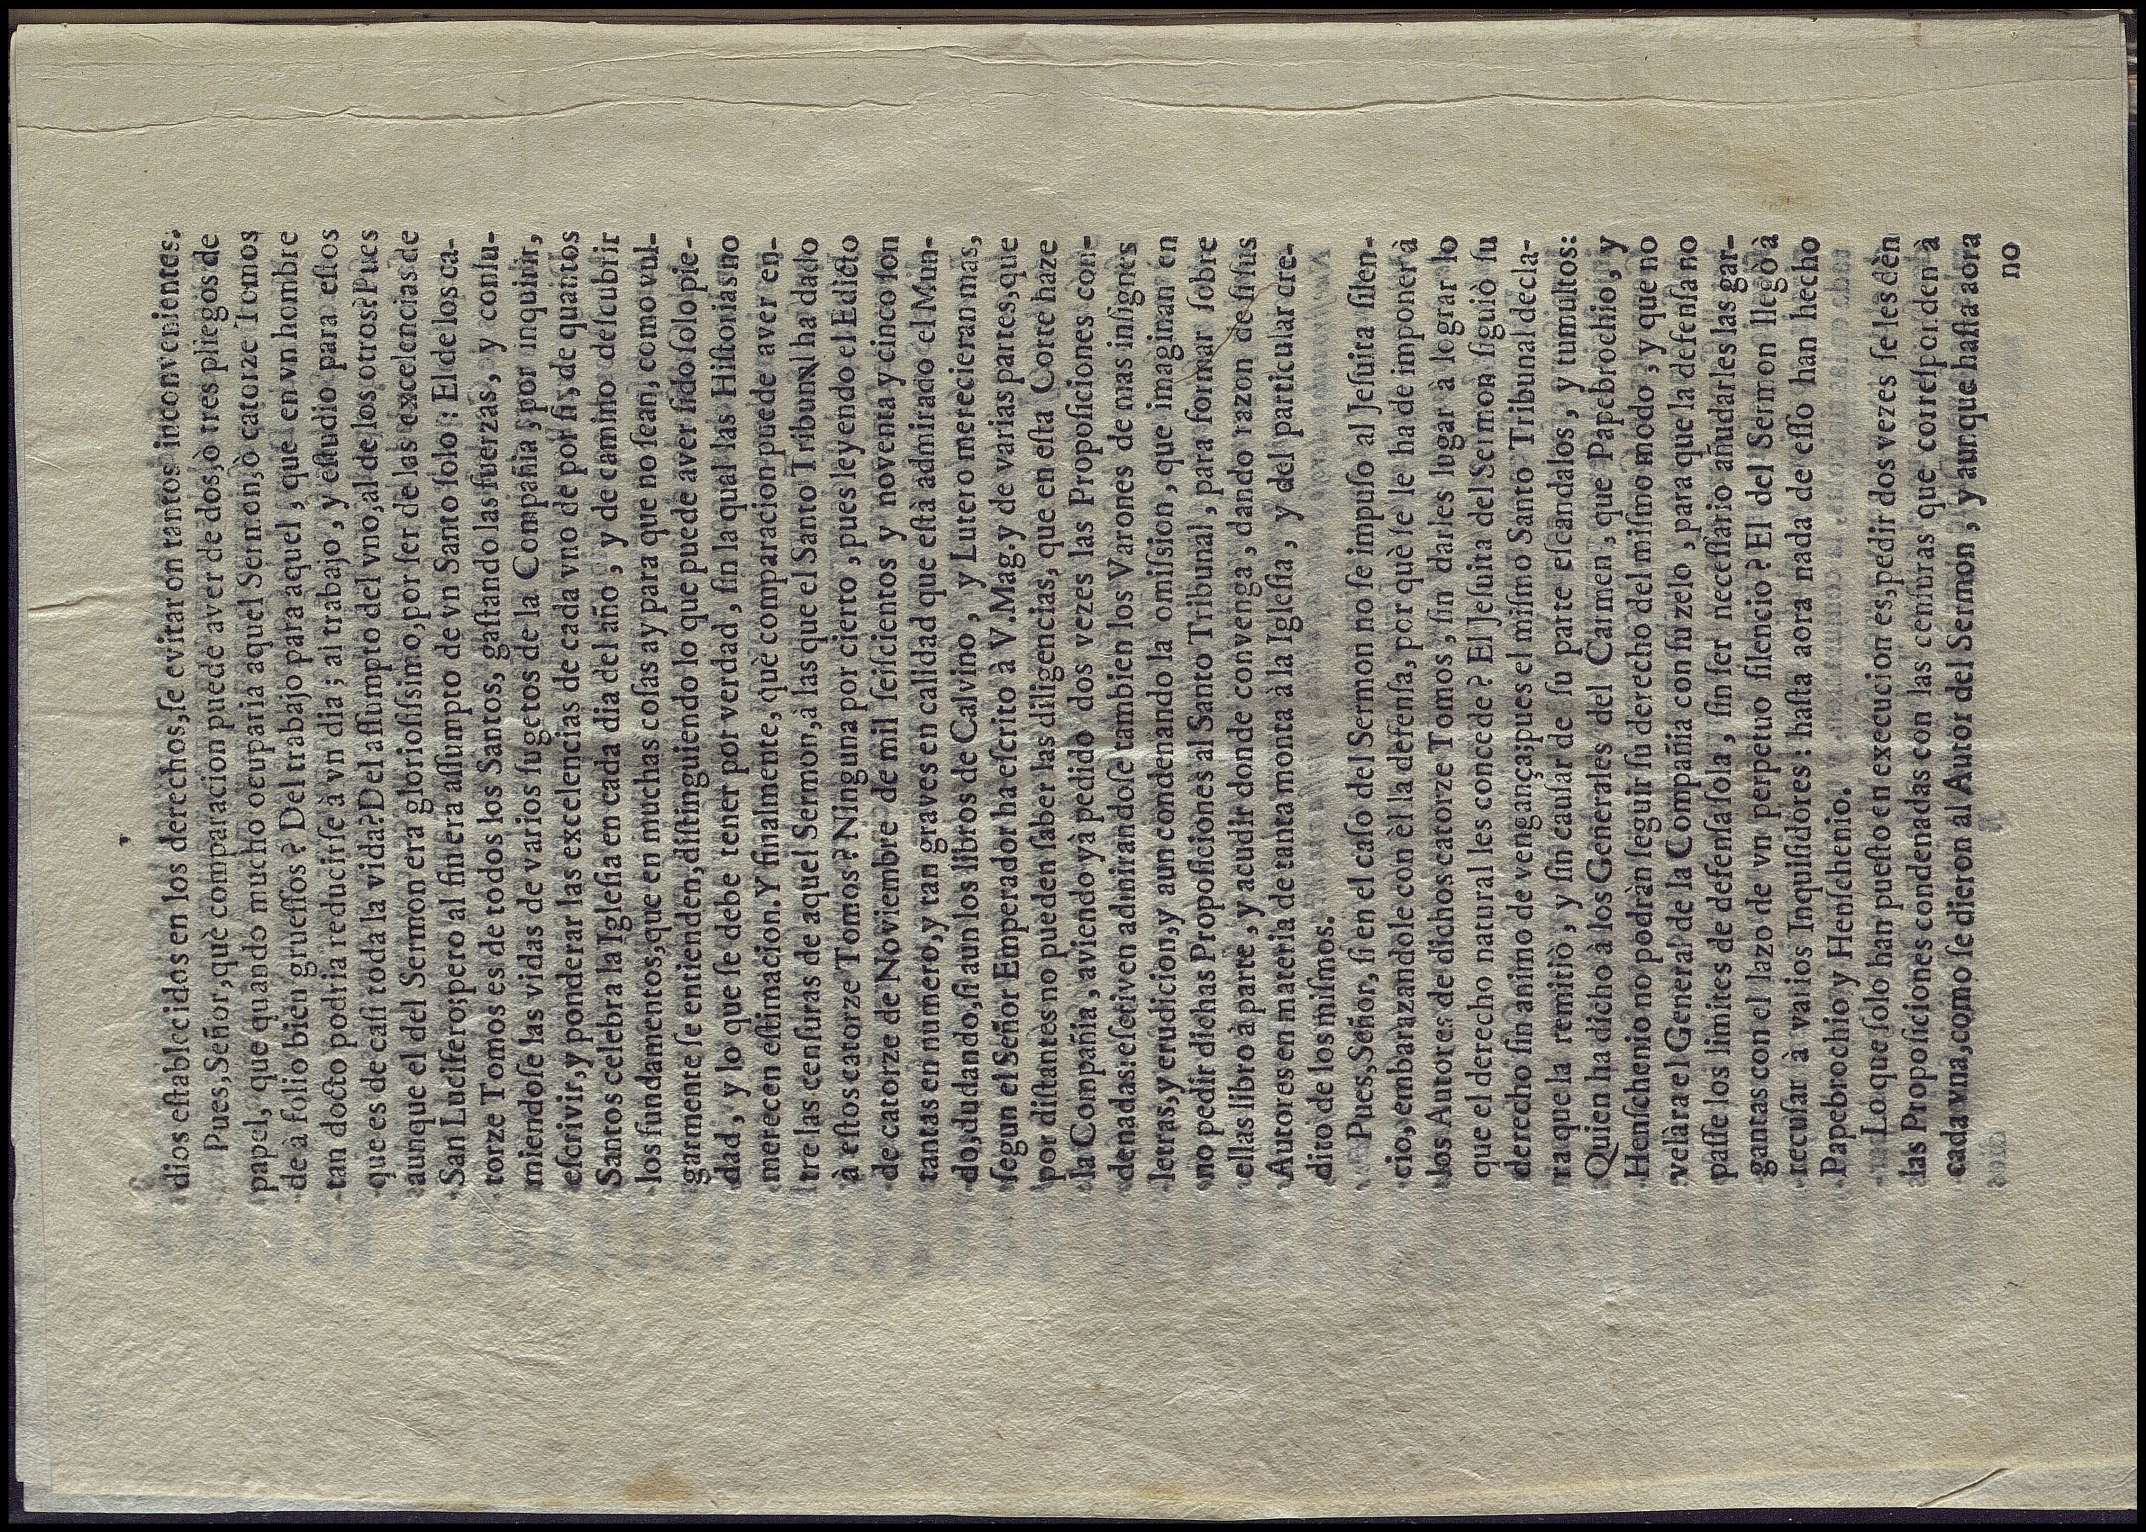 dios establecidos en los derechos, se evitaron tantos inconvenientes.
Pues, Señor, què comparacion puede aver de dos, ò tres pliegos de
papel, que quando mucho ocuparia aquel Sermon, ò catorze Tomos
de à folio bien gruessos? Del trabajo para aquel, que en vn hombre
tan docto podria reducirse à vn dia; al trabajo, y estudio para estos
que es de casi toda la vida? Del assumpto del vno, al de los otros? Pues
aunque el del Sermon era gloriosissimo, por ser de las excelencias de
San Lucifero; pero al fin era assumpto de vn Santo solo: El de los ca-
torze Tomos es de todos los Santos, gastando las fuerzas, y consu-
miendose las vidas de varios sugetos de la Compañia, por inquirir,
escrivir, y ponderar las excelencias de cada vno de por si, de quantos
Santos celebra la Iglesia en cada dia del año, y de camino descubrir
los fundamentos, que en muchas cosas ay para que no sean, como vul-
garmente se entienden, distinguiendo lo que puede aver sido solo pie-
dad, y lo que se debe tener por verdad, sin la qual las Historias no
merecen estimacion. Y finalmente, què comparacion puede aver en-
tre las censuras de aquel Sermon, à las que el Santo Tribunal ha dado
à estos catorze Tomos? Ninguna por cierto, pues leyendo el Edicto
de catorze de Noviembre de mil seiscientos y noventa y cinco son
tantas en numero, y tan graves en calidad que esta admirado el Mun-
do, dudando, si aun los libros de Calvino, y Lutero merecieran mas,
segun el Señor Emperador ha escrito à V. Mag. y de varias partes, que
por distantes no pueden saber las diligencias, que en esta Corte haze
la Compañia, aviendo yà pedido dos vezes las Proposiciones con-
denadas: escriven admirandose tambien los Varones de mas insignes
letras, y erudicion, y aun condenando la omission, que imaginan en
no pedir dichas Proposiciones al Santo Tribunal, para formar sobre
ellas libro à parte, y acudir donde convenga, dando razon de si sus
Autores en materia de tanta monta à la Iglesia, y del particular cre-
dito de los mismos.
Pues, Señor, si en el caso del Sermon no se impuso al Jesuita silen-
cio, embarazandole con èl la defensa, por què se le ha de imponer à
los Autores de dichos catorze Tomos, sin darles lugar à lograr lo
que el derecho natural les concede? El Jesuita del Sermon siguiò su
derecho sin animo de vengança; pues el mismo Santo Tribunal decla-
ra que la remitiò, y sin causar de su parte escandalos, y tumultos:
Quien ha dicho à los Generales del Carmen, que Papebrochio, y
Henschenio no podràn seguir su derecho del mismo modo, y que no
velàra el General de la Compañia con su zelo, para que la defensa no
passe los limites de defensa sola, sin ser necessario añudarles las gar-
gantas con el lazo de vn perpetuo silencio? El del Sermon llegò à
recusar à varios Inquisidores: hasta aora nada de esso han hecho
Papebrochio, y Henschenio.
Lo que solo han puesto en execucion es, pedir dos vezes se les dèn
las Proposiciones condenadas con las censuras que corresponden à
cada vna, como se dieron al Autor del Sermon, y aunque hasta aora
no